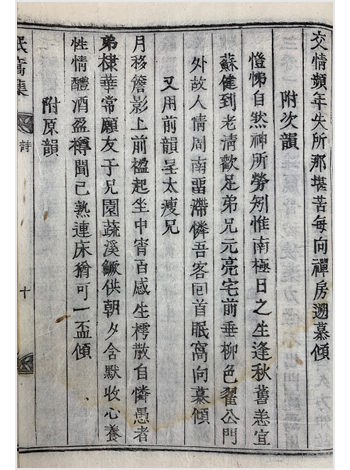 交情頻年失所那堪苦每向禪房遡慕傾
附次韻
愷悌自然神所勞矧惟南極日之生逢秋舊恙宜
蘇健到老淸歡足弟兄元亮宅前垂柳色翟公門
外故人情周南畱滯憐吾客回首眠窩向暮傾
又用前韻呈太瘦兄
月移簷影上前楹起坐中宵百感生樗散自憐愚者
弟棣華常願友于兄園蔬溪鱖供朝夕含默收心養
性情醴酒盈樽聞已熟連床猶可一盃傾
附原韻
眠窩集
十